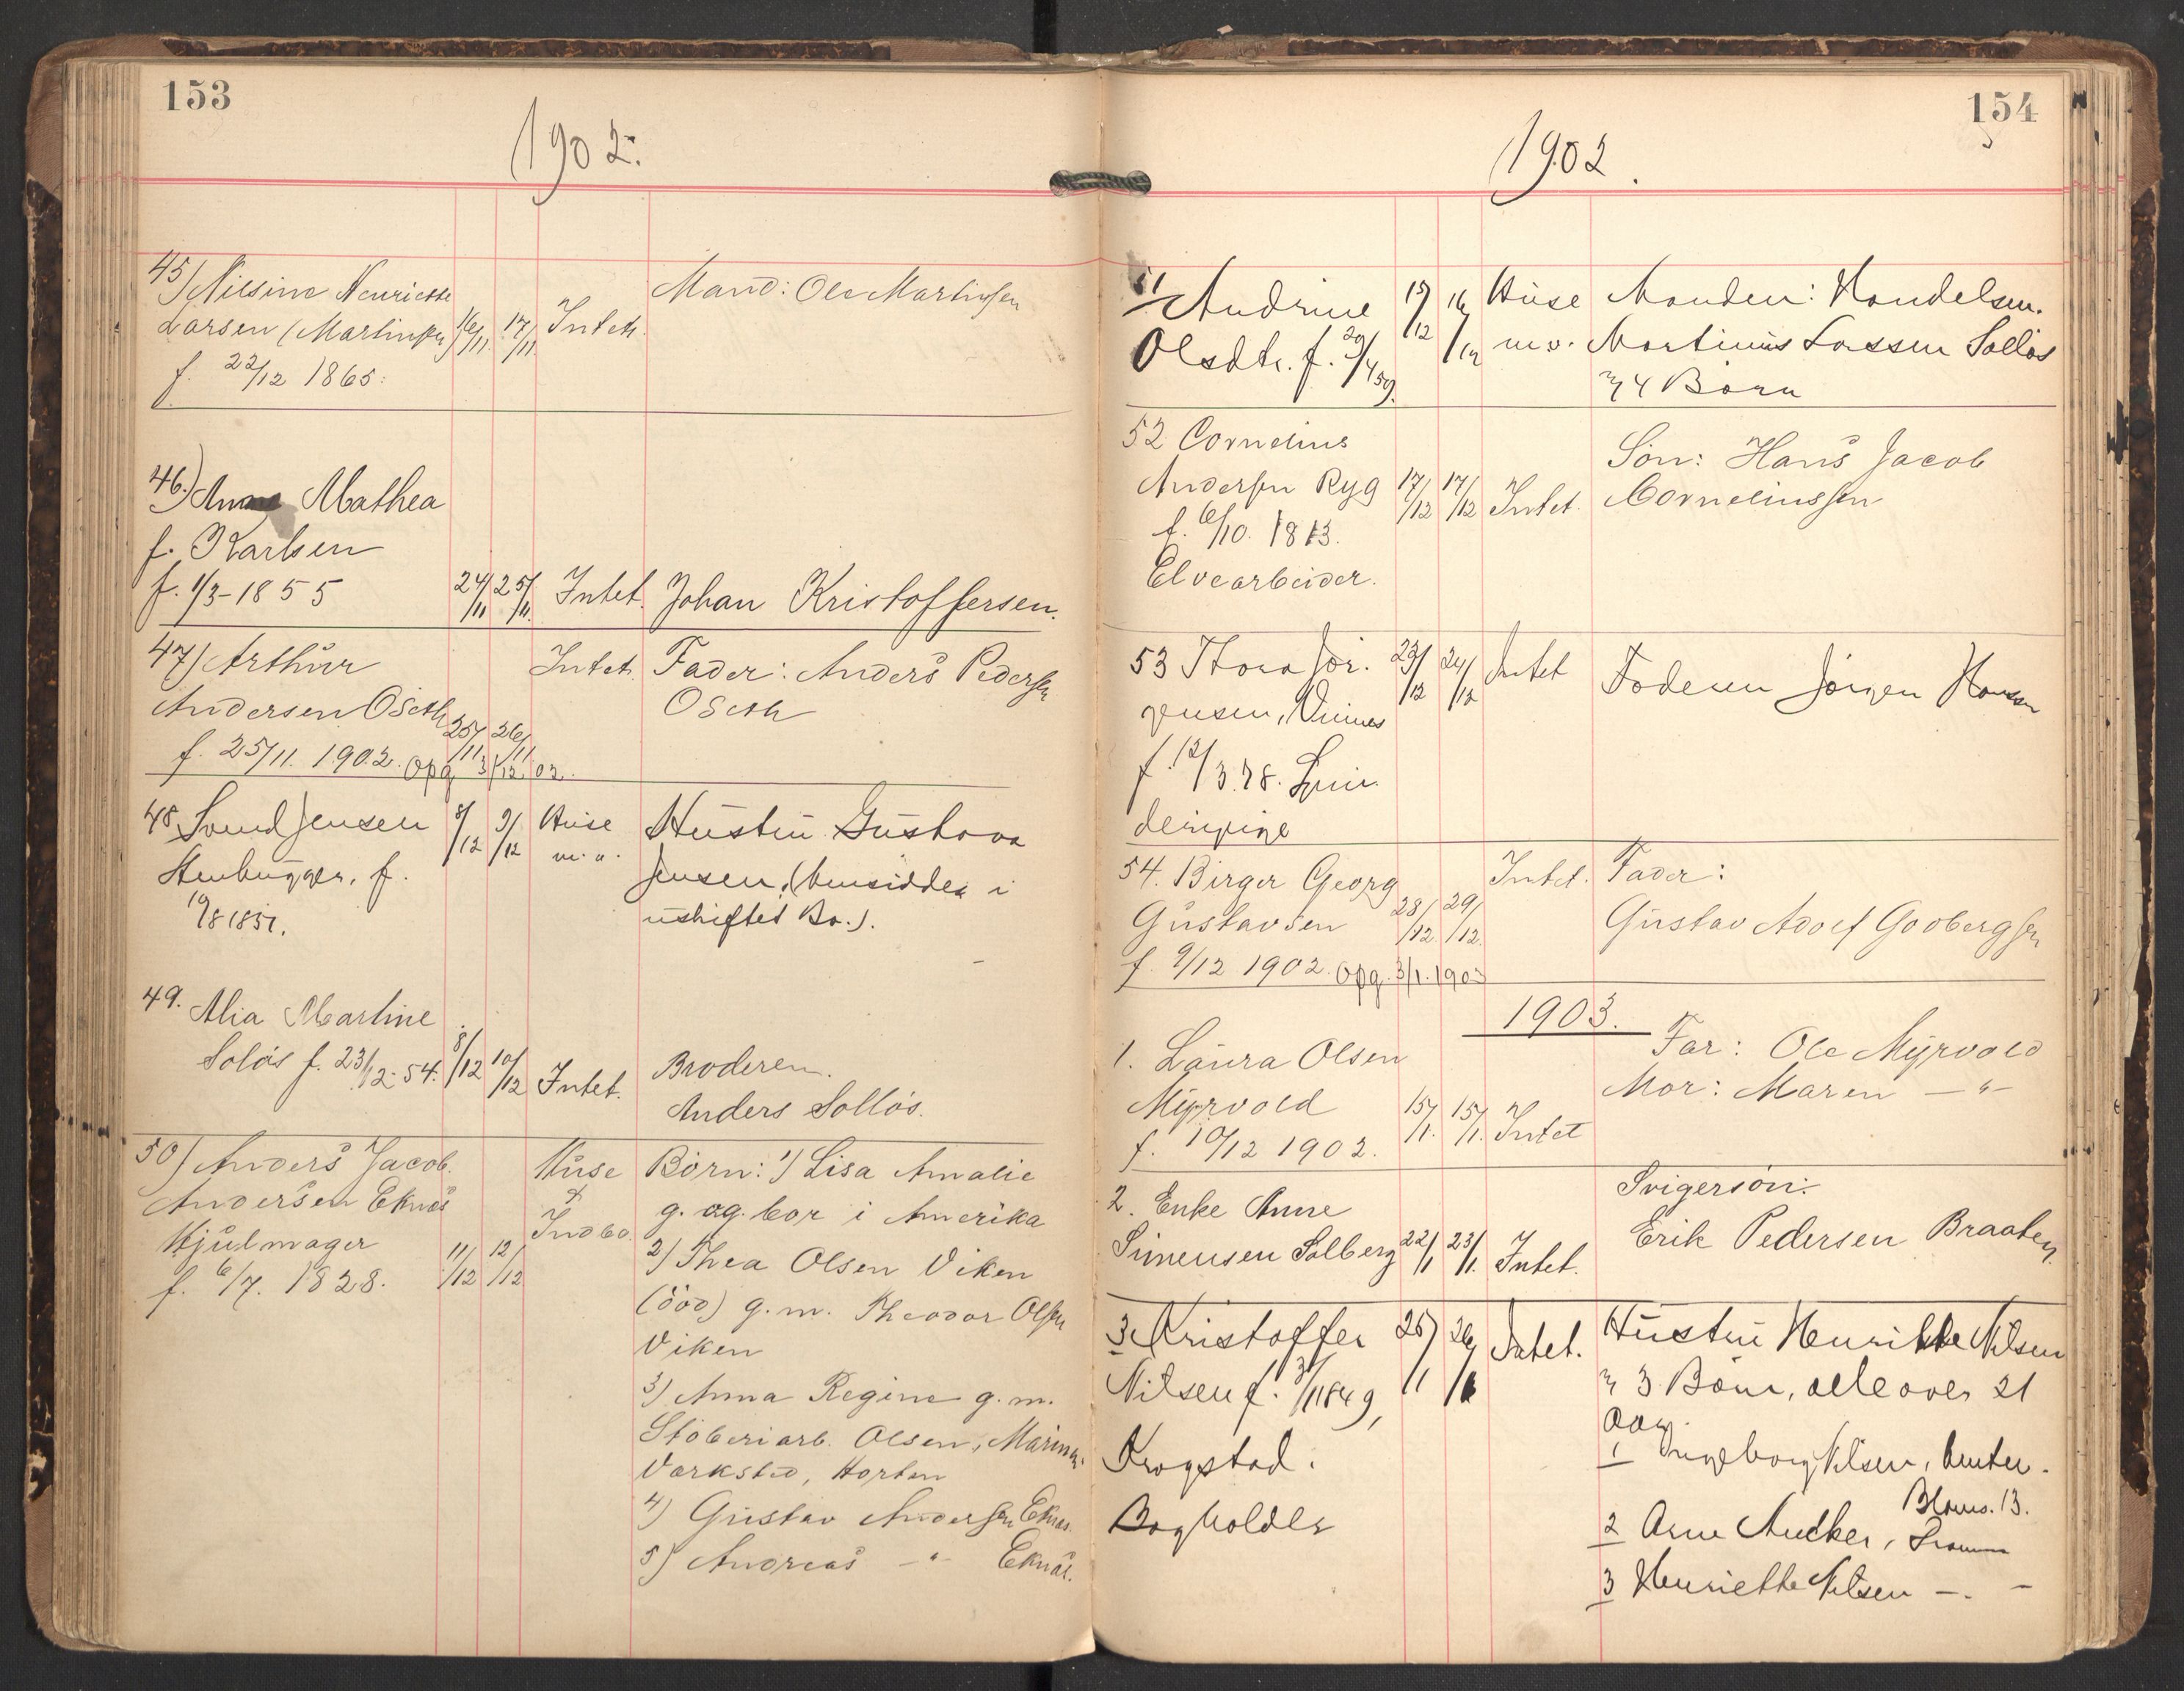 153
1902.
45) Nilsine Henriette
Larsen (Martinsen) 16/11. 17/11. Intet.
f. 22/12 1865.
Mand: Ole Martinsen
46.) Anne Mathea
f. Karlsen
f. 1/3-1855 24/11 25/11. Intet. Johan Kristoffersen.
47) Arthur Intet. Fader: Anders Pedersen
Andersen Oseth 25/11 26/11 Oseth
f. 25/11. 1902. Opg. 3/12. 02.
48 Svend Jensen 8/12 9/12 Huse Hustru Gustava
Stenbugger, f. m. v. Jensen, (hensidder i
19/8 1851. uskiftet Bo.).
49. Alia Martine
Solös f. 23/12-54. 8/12 10/12 Intet. Broderen.
Anders Sollös.
50) Anders Jacob. Huse Börn: 1) Lisa Amalie
Andersen Eknæs & g. og. bor i Amerika
Hjulmager 11/12 12/12 Indbo. 2) Thea Olsen Viken
f. 6/7. 1828. (död) g. m. Theodor Olsen
Viken
3) Anna Regine g. m.
Stöberiarb. Olsen,
Værksted, Horten
4) Gustav Andersen Eknæs.
5) Andreas -"- Eknæs.
154
1902.
51 Andrine 15/12 16/12 Huse Manden: Handelsm.
Olsdtr. f. 20/4 59. m. v. Martinus Larssen Sollös
& 4 Börn
52 Cornelius Sön: Hans Jacob
Andersen Ryg 17/12 17/12 Intet. Corneliussen
f. 6/10. 1813.
Elvearbeider.
53 Thora Jör- 23/12 24/12 Intet Faderen Jörgen Hansen
gensen,
f. 12/3. 78.
54. Birger Georg Intet. Fader:
Gustavsen 28/12 29/12. Gustav Adolf Godbergsen
f. 9/12 1902. Opg. 3/1. 1903
1903.
1. Laura Olsen Far: Ole Myrvold
Myrvold 15/1. 15/1. Intet Mor: Maren -"-
f. 10/12 1902.
2. Enke Anne Svigersön:
Simensen Solberg 22/1 23/1. Intet. Erik Pedersen Braaten.
3. Kristoffer 25/1 26/1 Intet. Hustru Henrikke Nilsen
Nilsen f. 3/11 1849, & 3 Börn, alle over 21
Krogstad. Aar.
Bogholder 1 Ingeborg Nilsen,
Bloms. 13.
2 Arne Ancker,
3 Henriette Nilsen -. -